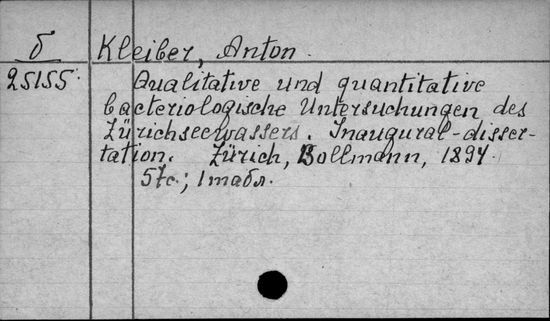 б Kleiber, Anton.
25155. Qualitative und quantitative
bacteriologische Untersuchungen des
Zürichseewassers. Inaugural-disser-
tation. Zürich, Bollmann, 1894.
57c.; 1 табл.